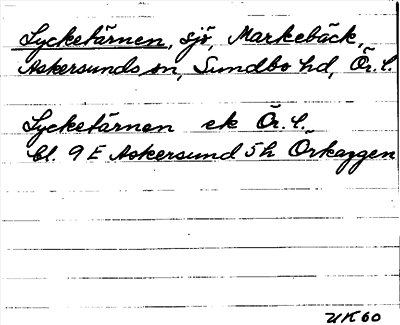 Lycketärnen, sjö, Markebäck,
Askersunds sn, Sundbo hd, Ör.l.
Lycketärnen ek Ör.l.
bl. 9 E Askersund 5h Örkaggen
UK60